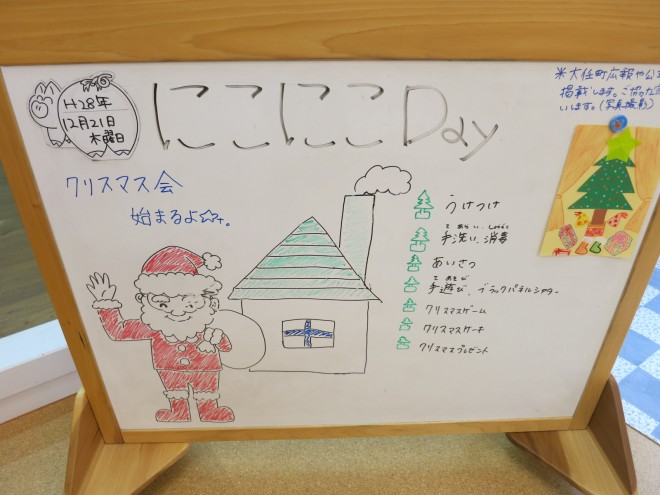 H28年
12月21日
木曜日
にこにこDay
※大任町広報や公
掲載します。ご協力
いします。(写真撮影)
クリスマス会
始まるよ☆。
うけつけ
て あら しょうどく
手洗い、消毒
あいさつ
て あそ
手遊び、ブラックパネルシアター
クリスマスゲーム
クリスマスケーキ
クリスマスプレゼント